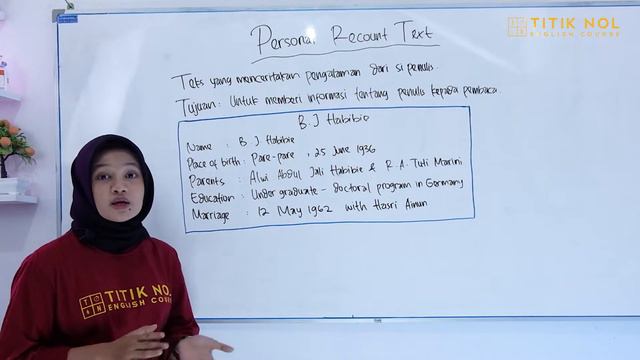 Personal Recount Text
TITIK NOL
ENGLISH COURSE
Teks yang menceritakan pengalaman dari si penulis.
Tujuan: Untuk memberi informasi tentang penulis kepada pembaca.
B.J Habibie
Name : B. J. Habibie
Place of birth : Pare-pare , 25 June 1936
Parents : Alwi Abdul Jali Habibie & R.A. Tuti Marini
Education : Under graduate - doctoral program in Germany
Marriage : 12 May 1962 with Hasri Ainun
TITIK NOL
ENGLISH COURSE